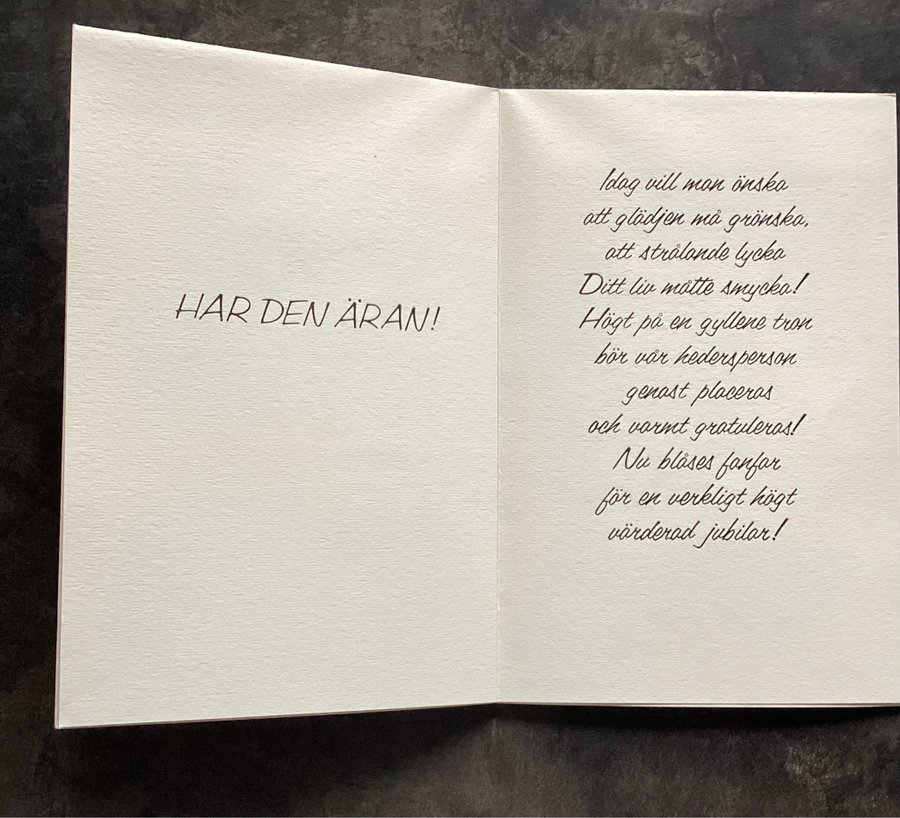 HAR DEN ÄRAN!
Idag vill man önska
att glädjen må grönska,
att strålande lycka
Ditt liv måtte smycka!
Högt på en gyllene tron
bör vår hedersperson
genast placeras
och varmt gratuleras!
Nu blåses fanfar
för en verkligt högt
värderad jubilar!